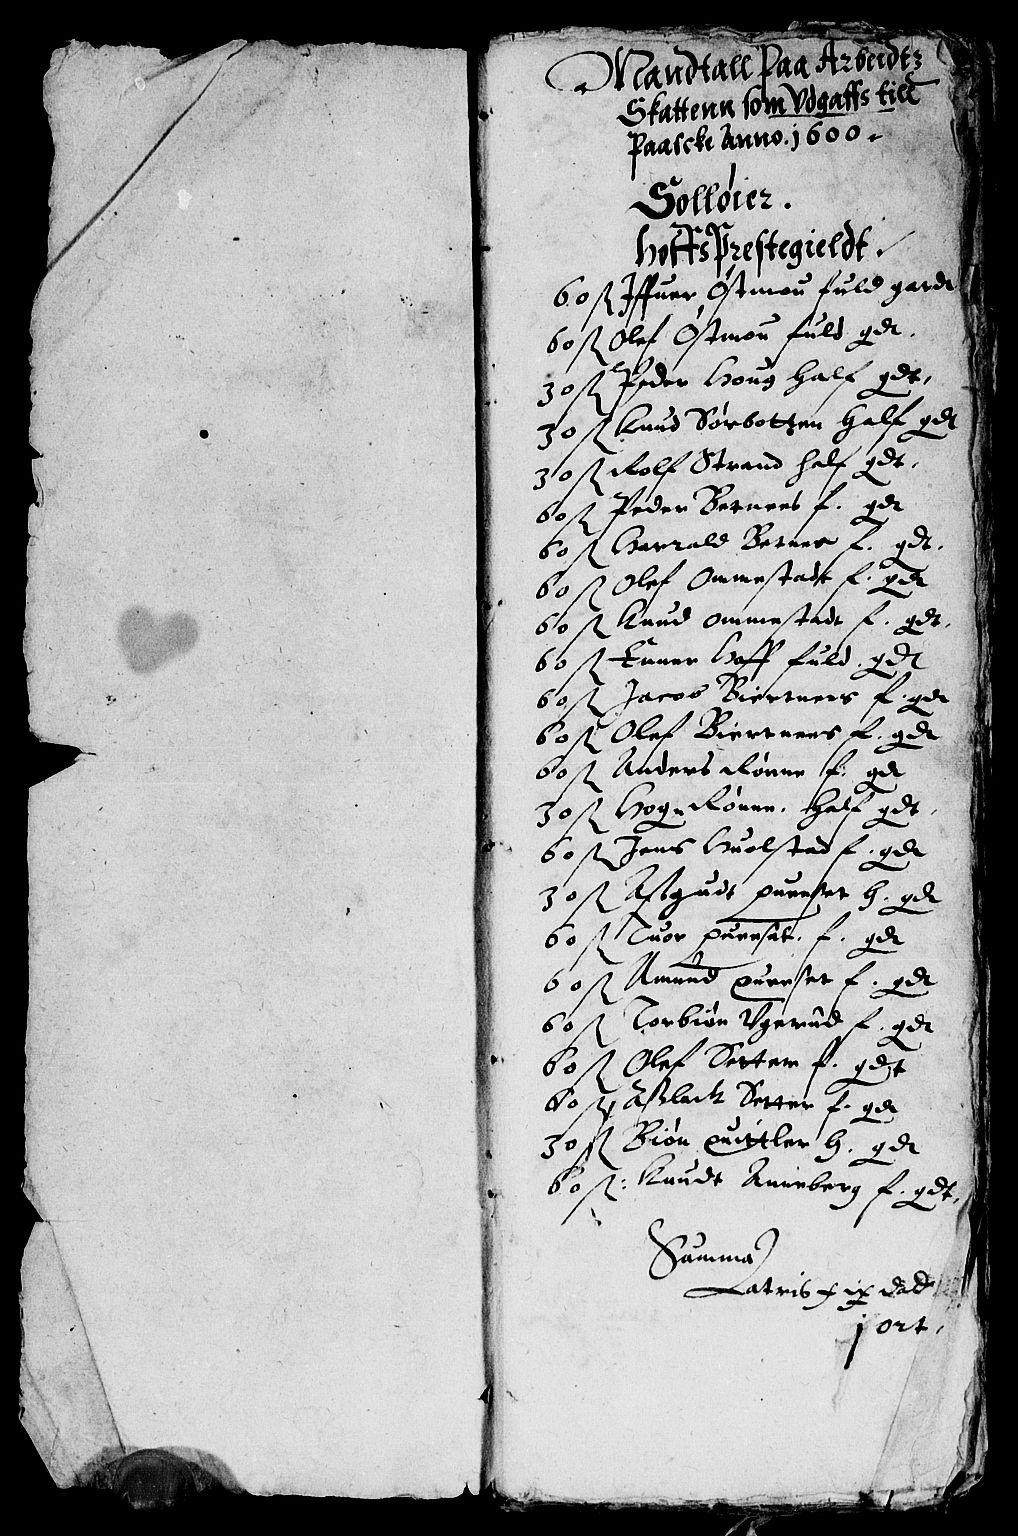 Mandtall Paa Arbeidtz
Skattenn som Vdgaffs till
Paascke Anno. 1600.
Solløier.
Hoffs Prestegieldt.
60 ß Iffuer Østmou fuld gardt
60 ß Olef Østmou fuld gdt.
30 ß Peder Houg half gdt.
30 ß Knud Sørbotten half gdt
30 ß Rolf Strand half gdt.
60 ß Peder Bernees f. gdt
60 ß Harrald Bernes f. gdt.
60 ß Olef Ommestadt f. gdt
60 ß Knud Ommestadt f. gdt.
60 ß Enner Hoff fuld. gdt
60 ß Jacob Biertners f. gdt
60 ß Olef Biertnees f. gdt
60 ß Anders Rønne f. gdt
30 ß Hogn Rønne. half gdt.
60 ß Jens Huolstad f. gdt
30 ß Aßgudt h. gdt
60 ß Tuor f. gdt
60 ß Amund f. gdt
60 ß Torbiøn Vgerud f. gdt
60 ß Olef Setter f. gdt
60 ß Aßlack Setter f. gdt
30 ß Biøn h. gdt
60 ß: Knudt Anneberg f. gdt.
Summa
Latris ix dald
j ort.